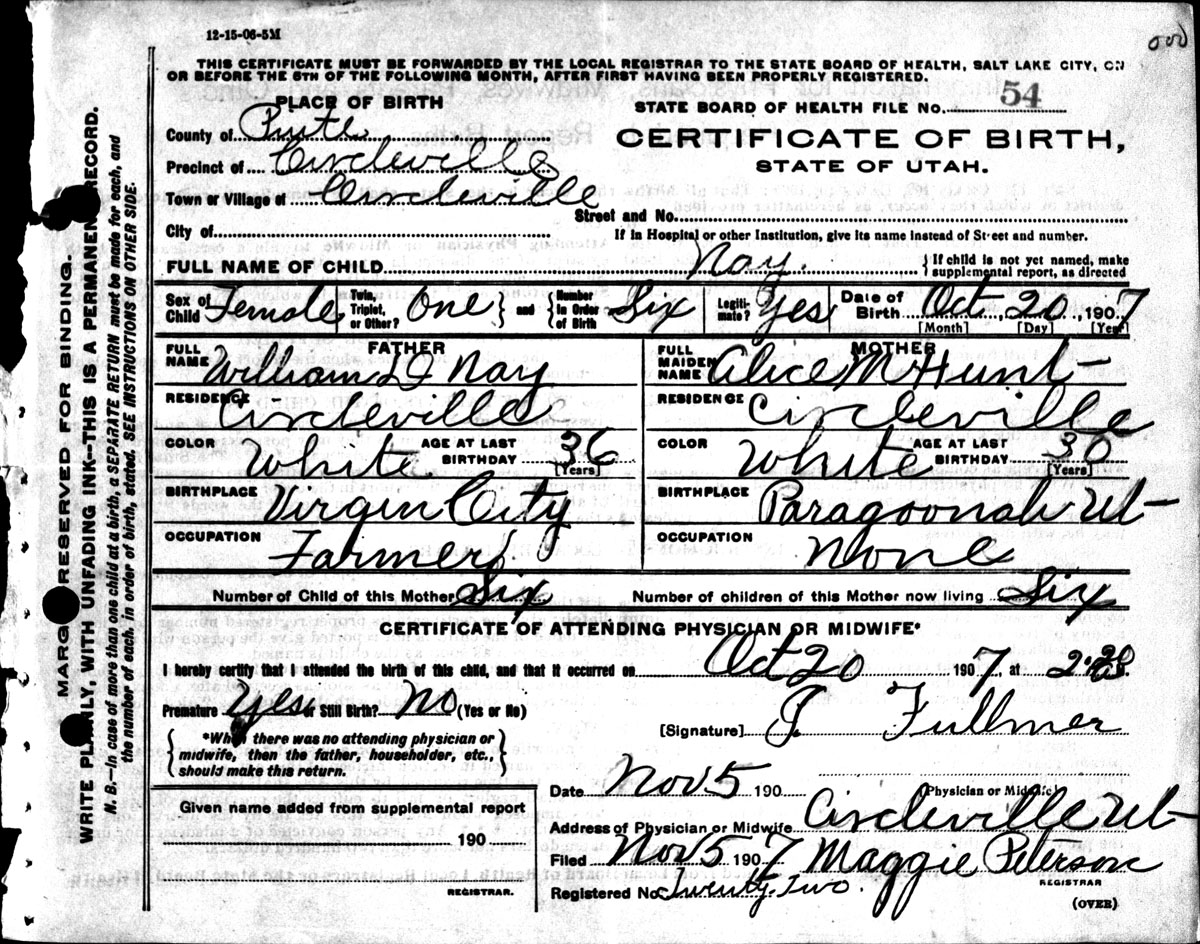 12-15-06-5M
THIS CERTIFICATE MUST BE FORWARDED BY THE LOCAL REGISTRAR TO THE STATE BOARD OF HEALTH, SALT LAKE CITY, ON
OR BEFORE THE 5TH OF THE FOLLOWING MONTH, AFTER FIRST HAVING BEEN PROPERLY REGISTERED.
PLACE OF BIRTH
STATE BOARD OF HEALTH FILE NO. 54
County of Piute
CERTIFICATE OF BIRTH,
Precinct of Circleville
STATE OF UTAH.
Town or Village of Circleville
Street and No.
City of
If in Hospital or other Institution, give its name instead of Street and number.
FULL NAME OF CHILD Nay. } If child is not yet named, make
supplemental report, as directed
Sex of Child Female Twin, Triplet, or Other? One } and { Number in Order of Birth Six Legiti-mate? Yes Date of Birth Oct, 20 1907
[Month] [Day] [Year]
FATHER MOTHER
FULL NAME William D Nay FULL MAIDEN NAME Alice M Hunt
RESIDENCE Circleville RESIDENCE Circleville
COLOR White AGE AT LAST BIRTHDAY 36 [Years] COLOR White AGE AT LAST BIRTHDAY 30 [Years]
BIRTHPLACE Virgin City BIRTHPLACE Paragoonah Ut
OCCUPATION Farmer OCCUPATION none
Number of Child of this Mother Six Number of children of this Mother now living Six
CERTIFICATE OF ATTENDING PHYSICIAN OR MIDWIFE*
I hereby certify that I attended the birth of this child, and that it occurred on Oct 20 1907, at
Premature Yes or Still Birth? No (Yes or No)
[Signature] J. Fullmer
{ *When there was no attending physician or
midwife, then the father, householder, etc.,
should make this return. }
Date Nov 5 190 (Physician or Midwife)
Given name added from supplemental report
190
REGISTRAR.
Address of Physician or Midwife Circleville Ut
Filed Nov 5 1907 Maggie Peterson
REGISTRAR
Registered No. Twenty Two.
(OVER)
MARGIN RESERVED FOR BINDING.
WRITE PLAINLY, WITH UNFADING INK—THIS IS A PERMANENT RECORD.
N. B.—In case of more than one child at a birth, a SEPARATE RETURN must be made for each, and
the number of each, in order of birth, stated. SEE INSTRUCTIONS ON OTHER SIDE.